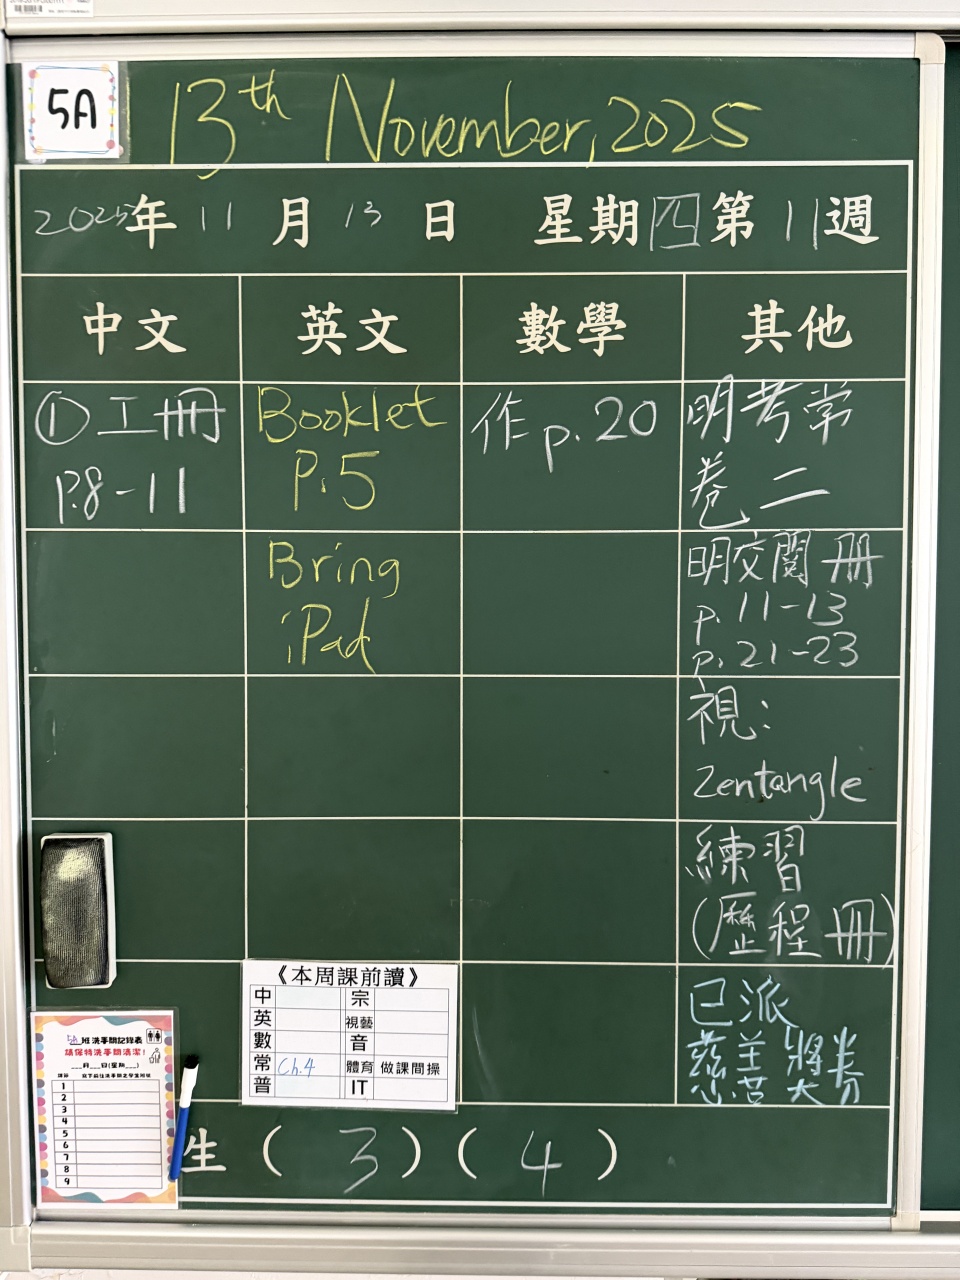 5A
13th November, 2025
2025年 11 月 13 日 星期四第 11 週
中文 英文 數學 其他
①工冊
p.8-11
Booklet
P.5
作 p.20
明考常
卷二
Bring
iPad
明交閱冊
p.11-13
p.21-23
視:
Zentangle
練習
(歷程冊)
已派
慈善獎券
《本周課前讀》
中 宗
英 視藝
數 音
常 Ch.4 體育 做課間操
普 IT
5A 班洗手間記錄表
請保持洗手間清潔!
___月___日(星期___)
1
2
3
4
5
6
7
8
9
生 ( 3 ) ( 4 )